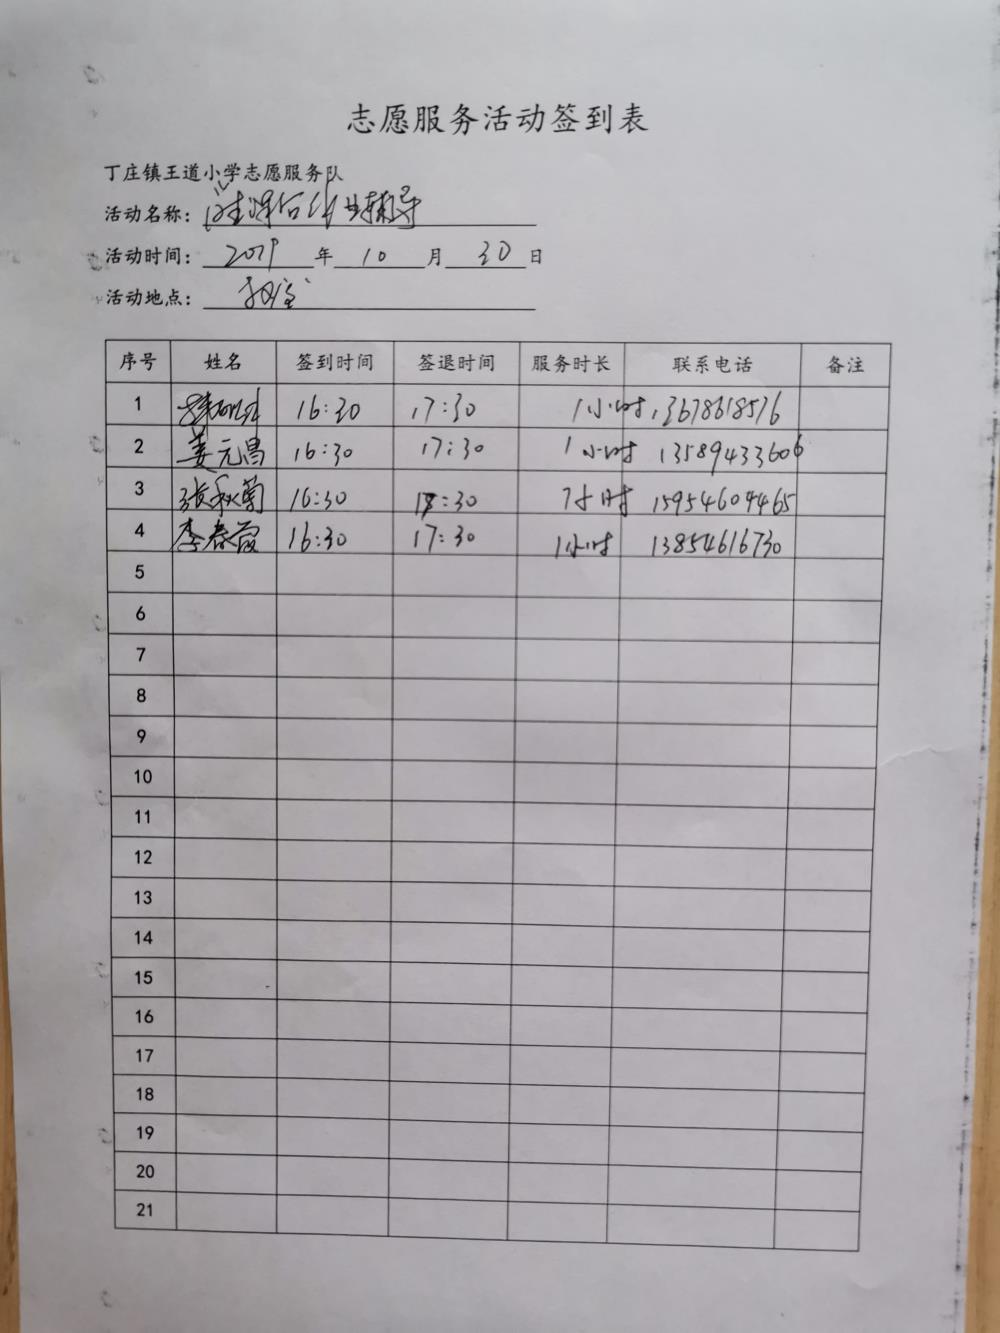 志愿服务活动签到表
丁庄镇王道小学志愿服务队
活动名称：课后作业辅导
活动时间：2019年10月30日
活动地点：
序号 姓名 签到时间 签退时间 服务时长 联系电话 备注
1 16:30 17:30 1小时 13678618576
2 姜元昌 16:30 17:30 1小时 13589433606
3 张秋菊 16:30 17:30 1小时 15954604465
4 李春霞 16:30 17:30 1小时 13854616730
5
6
7
8
9
10
11
12
13
14
15
16
17
18
19
20
21